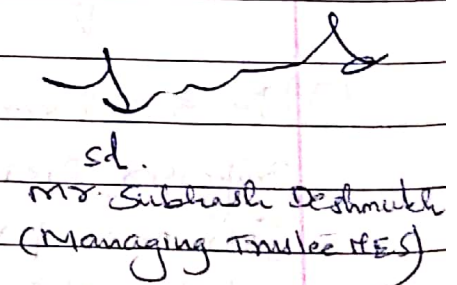 sd.
Mr. Subhash Deshmukh
(Managing Trustee HES)